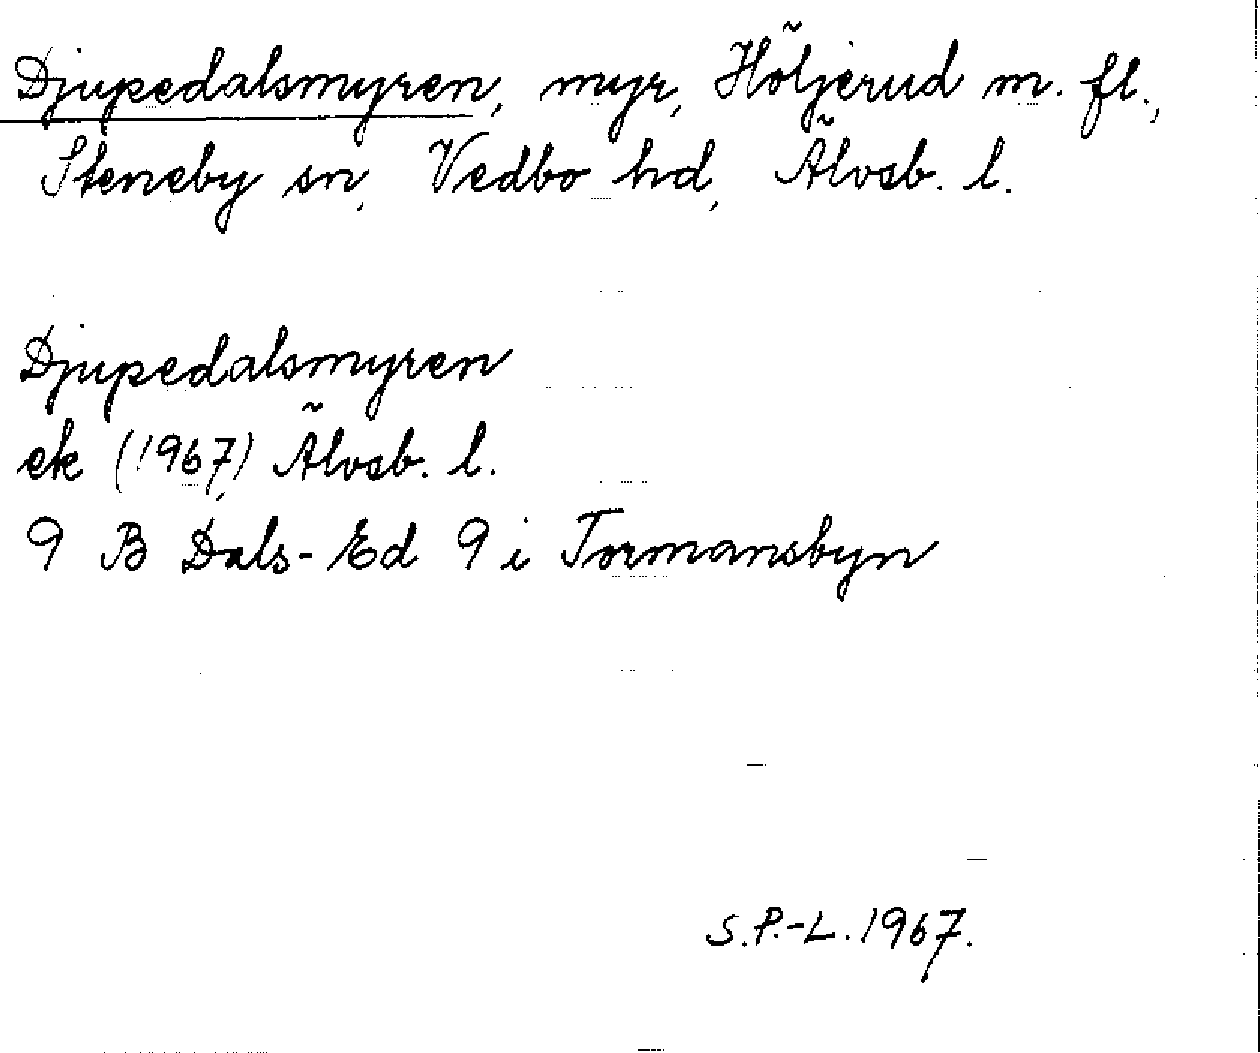 Djupedalsmyren, myr, Höljerud m. fl.,
Steneby sn, Vedbo hd, Älvsb. l.
Djupedalsmyren
ek (1967) Älvsb. l.
9 B Dals-Ed 9 i Tormansbyn
S.P.-L. 1967.